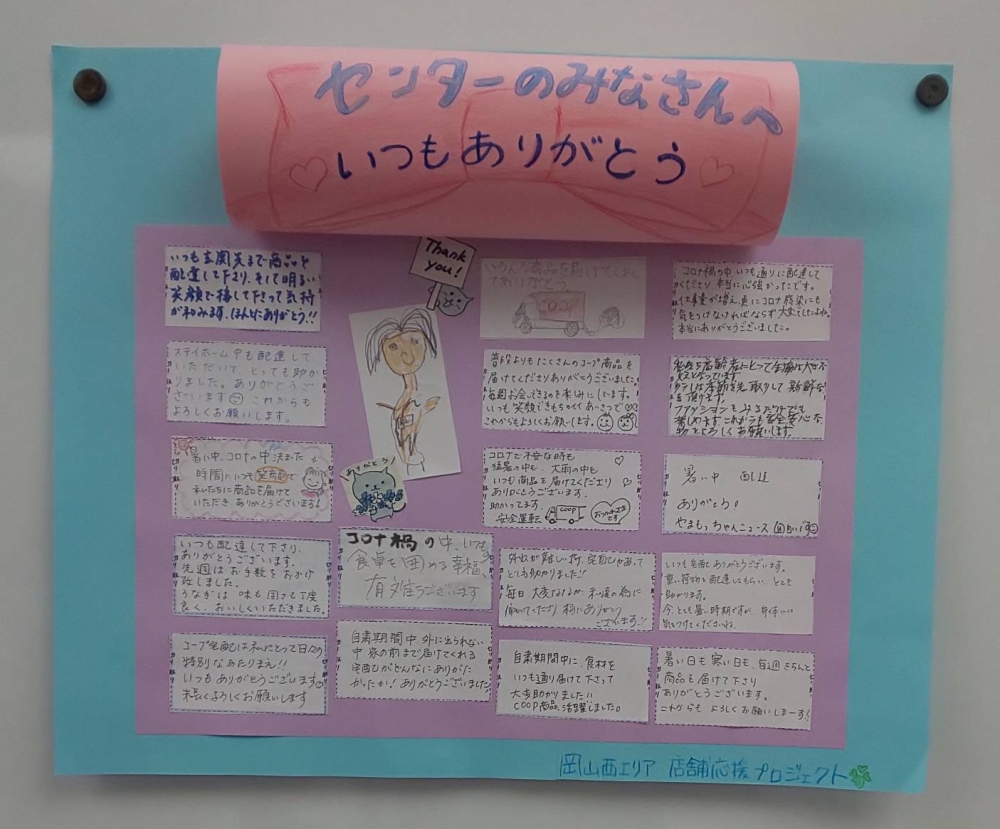 センターのみなさんへ
いつもありがとう
いつも玄関先まで商品を
配達して下さり、そして明るい
笑顔で接して下さって気持
が和みます。ほんとにありがとう!!
ステイホーム中も配達して
いただいて、とっても助か
りました。ありがとうご
ざいます これからも
よろしくお願いします。
暑い中、コロナの中 決まった
時間にいつも笑顔で
私たちに商品を届けて
いただき ありがとうございます
いつも配達して下さり、
ありがとうございます。
先週はお手数をおかけ
致しました。
うなぎは 味も 固さも丁度
良く、おいしくいただきました。
コープ宅配は私にとって日々の
特別なあたりまえ!!
いつもありがとうございます
末長くよろしくお願いします
Thank
you!
ありがとう!
コロナ禍の中、いつも
食卓を囲める幸福、
有難うございます
自粛期間中 外に出られない
中 家の前まで届けてくれる
宅配がどんなにありがた
かったか! ありがとうございました
いろんな商品を届けてくれ
てありがとう
COOP
普段よりもたくさんのコープ商品を
届けてくださりありがとうございました。
毎週お会いできるのを楽しみにしています。
いつも笑顔できもちのいいあいさつで
これからもよろしくお願いします。
コロナで不安な時も
猛暑の中も、大雨の中も
いつも商品を届けてくださり
ありがとうございます。
助かってます。
安全運転 COOP おつかれさまです
外出が難しい折、宅配があって
とても助かりました!!
毎日 大変な
届けてくださり、本当にありがとう
ございます!!
自粛期間中に、食材を
いつも通り届けて下さって
大変助かりました!!
COOP商品、活躍しました。
コロナ禍の中 いつも通りに配達して
くださり 本当に心強かったです。
仕事量が増え、更にコロナ感染にも
気をつけなければならず 大変でしたよね。
本当にありがとうございました。
私達高齢者にとって
チラシは季節を先取りして 新鮮な
ファッションもみるだけでも
楽しめます これからも安全安心な
物をよろしくお願いします。
暑い中 配達
ありがとう。
やまもっちゃんニュース
いつも宅配ありがとうございます。
重い荷物を配達してもらい とても
助かります。
今 とても暑い時期ですが、身体には
気をつけてくださいね。
暑い日も 寒い日も、毎週きちんと
商品を届けて下さり
ありがとうございます。
これからも よろしくお願いしまーす!
岡山西エリア 店舗応援プロジェクト